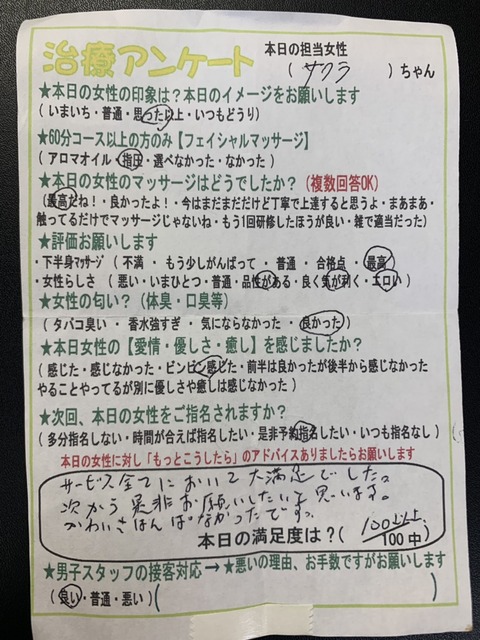 治療アンケート
本日の担当女性
(サクラ)ちゃん
★本日の女性の印象は?本日のイメージをお願いします
(いまいち・普通・思った以上・いつもどうり)
★60分コース以上の方のみ【フェイシャルマッサージ】
(アロマオイル・指圧・選べなかった・なかった)
★本日の女性のマッサージはどうでしたか?(複数回答OK)
(最高だね!・良かったよ!・今はまだまだだけど丁寧で上達すると思うよ・まあまあ・
触ってるだけでマッサージじゃないね・もう1回研修したほうが良い・雑で適当だった)
★評価お願いします
・下半身マッサージ(不満・もう少しがんばって・普通・合格点・最高)
・女性らしさ(悪い・いまひとつ・普通・品性がある・良く気が利く・エロい)
★女性の匂い?(体臭・口臭等)
(タバコ臭い・香水強すぎ・気にならなかった・良かった)
★本日女性の【愛情・優しさ・癒し】を感じましたか?
(感じた・感じなかった・ビンビン感じた・前半は良かったが後半から感じなかった
やることやってるが別に優しさや癒しは感じなかった)
★次回、本日の女性をご指名されますか?
(多分指名しない・時間が合えば指名したい・是非予約指名したい・いつも指名なし)
本日の女性に対し「もっとこうしたら」のアドバイスありましたらお願いします
サービス全てにおいて大満足でした。
次から是非お願いしたいと思います。
かわいさはんぱなかったですっ
本日の満足度は?(100以上/100中)
★男子スタッフの接客対応→★悪いの理由、お手数ですがお願いします
(良い・普通・悪い)( )